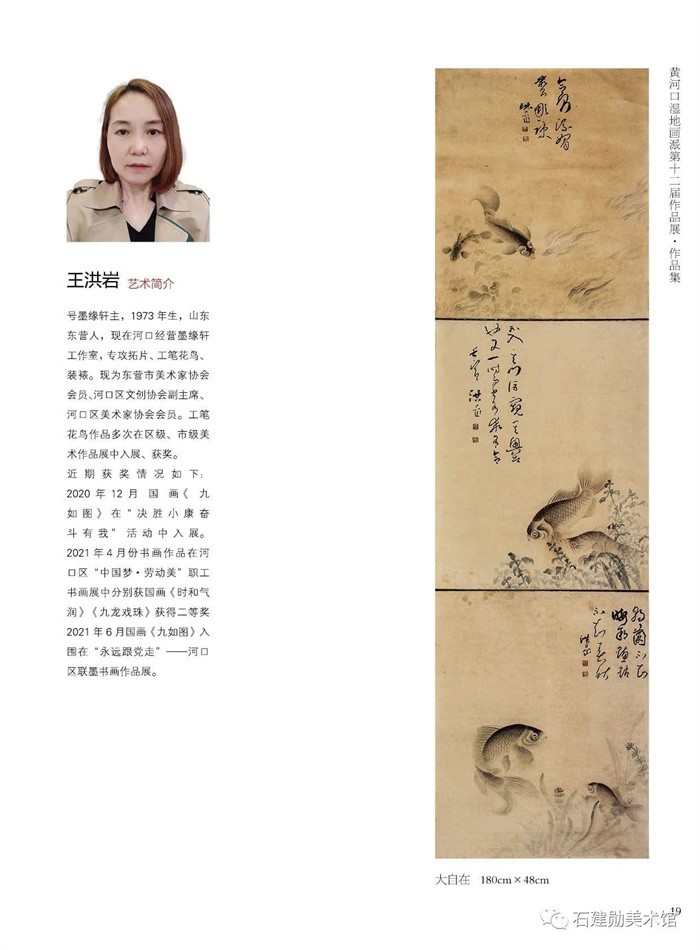 黄河口湿地画派第十二届作品展·作品集
王洪岩 艺术简介
号墨缘轩主，1973 年生，山东
东营人，现在河口经营墨缘轩
工作室，专攻拓片、工笔花鸟、
装裱。现为东营市美术家协会
会员、河口区文创协会副主席、
河口区美术家协会会员。工笔
花鸟作品多次在区级、市级美
术作品展中入展、获奖。
近期获奖情况如下：
2020 年 12 月 国 画《 九
如图》在“决胜小康奋
斗有我”活动中入展。
2021 年 4 月份书画作品在河
口区“中国梦·劳动美”职工
书画展中分别获国画《时和气
润》《九龙戏珠》获得二等奖
2021 年 6 月国画《九如图》入
围在“永远跟党走”——河口
区联墨书画作品展。
大自在 180cm×48cm
19
石建勋美术馆